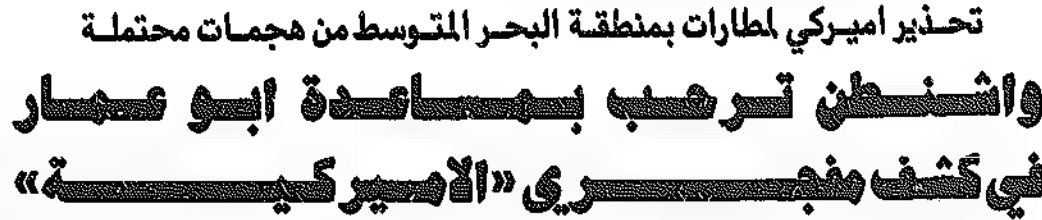 تحذير اميركي لمطارات بمنطقة البحر المتوسط من هجمات محتملة
واشنطن ترحب بمساعدة ابو عمار
في كشف مفجري «الاميركية»